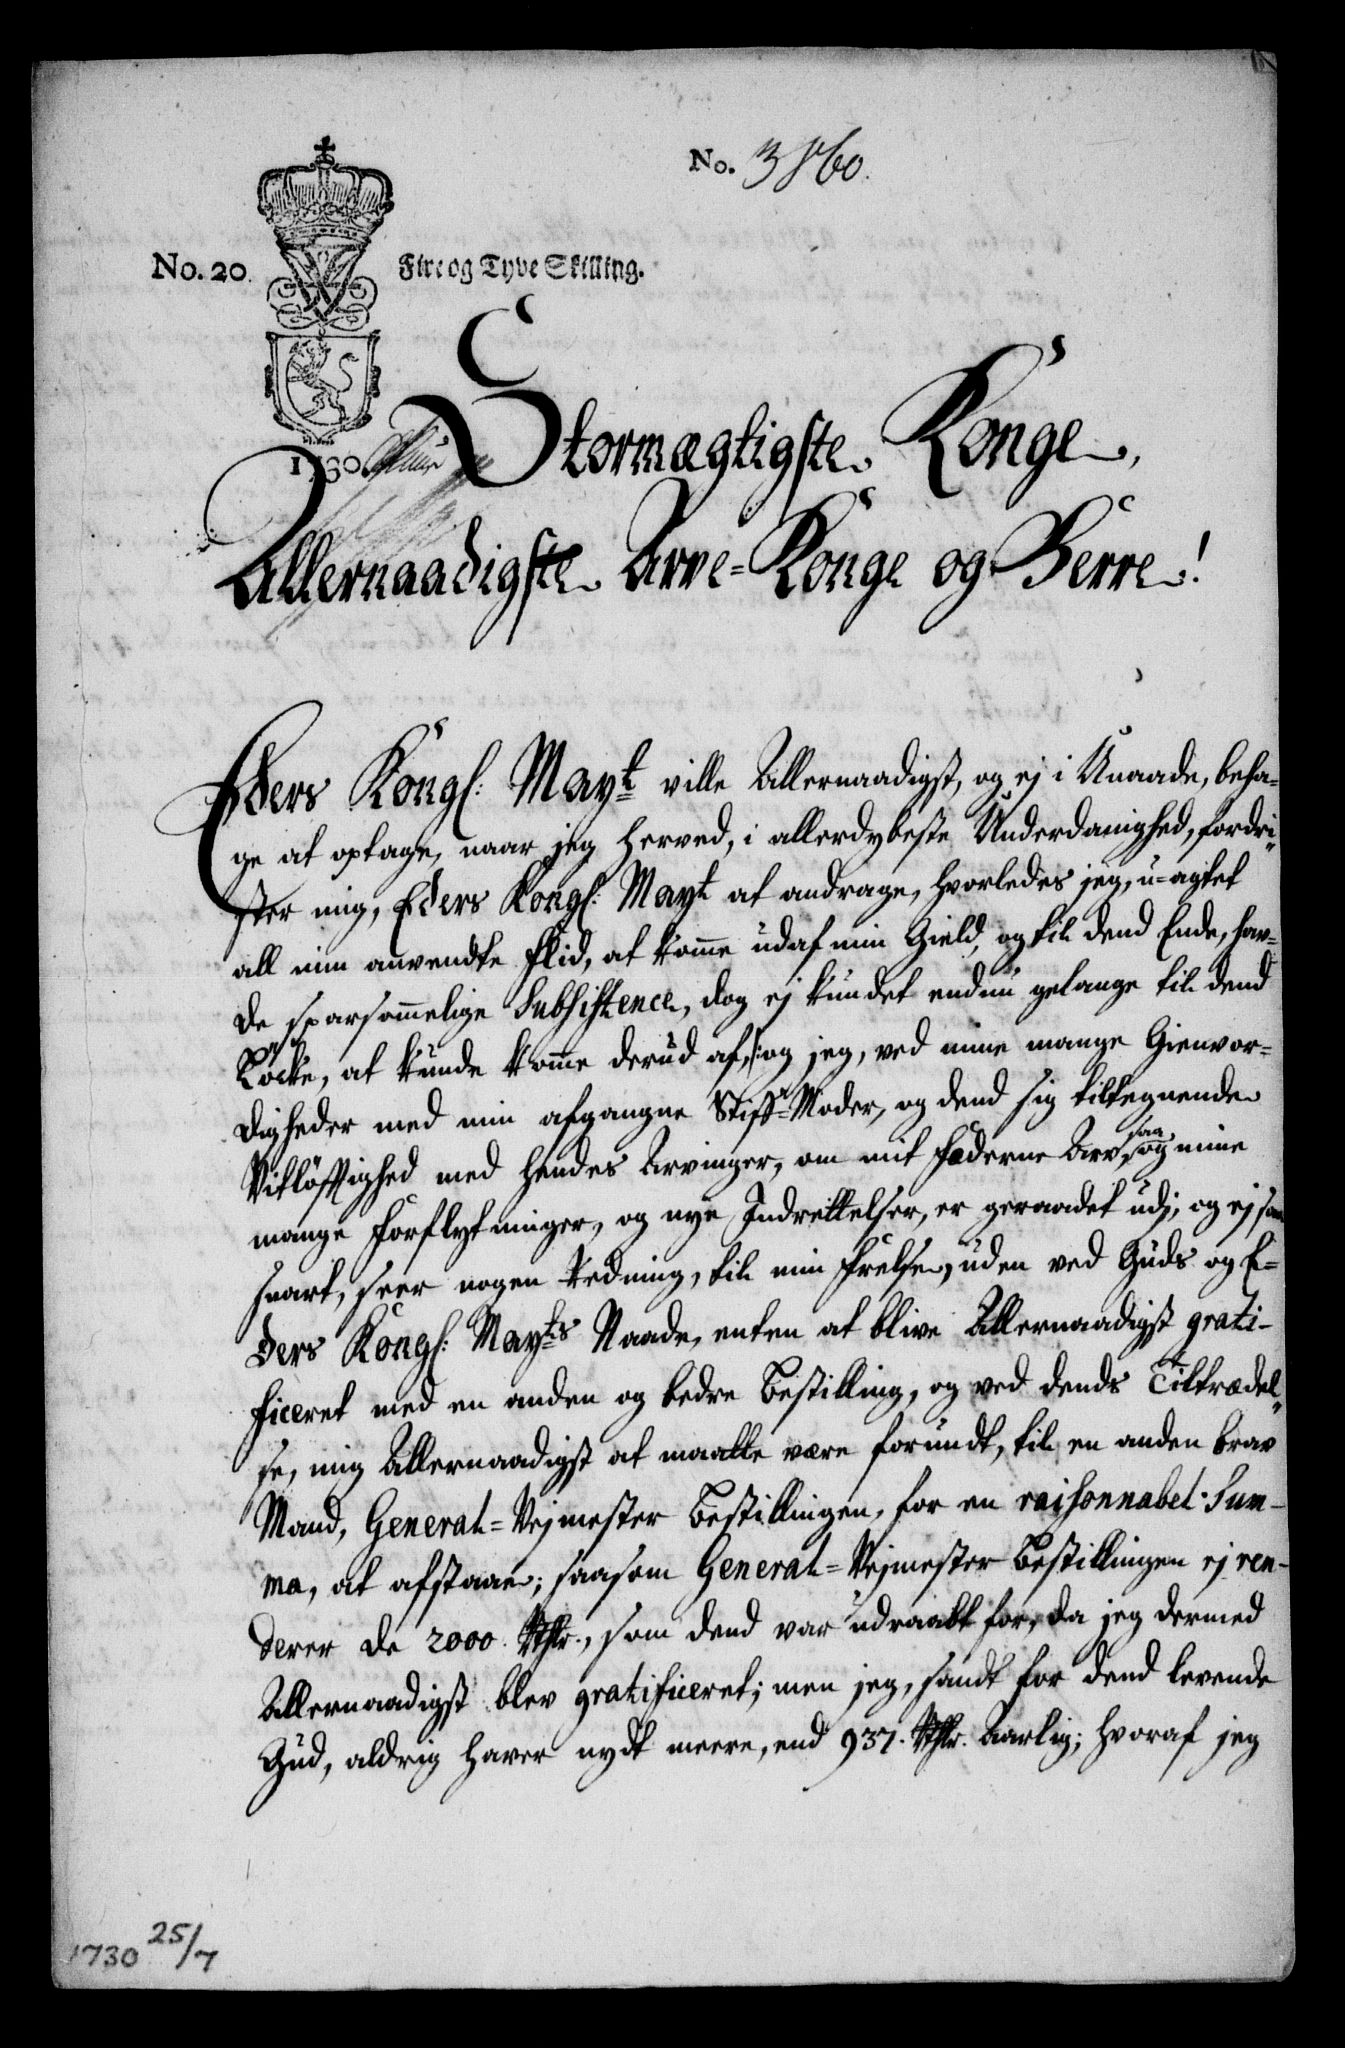 No. 3860.
No. 20. Fire og Tyve Skilling.
1730
Stormægtigste Konge,
Allernaadigste Arve-Konge og Herre!
Eders Kongl: Mayt ville Allernaadigst, og ej i Unaade, beha=
ge at optage, naar jeg herved, i allerdybeste Underdanighed, fordri=
ster mig, Eders Kongl: Mayt at andrage, hvorledes jeg, u=agtet
all min anvendte Flid, at komme udaf min Gield, og til dend Ende, hav=
de sparsommelige Subsistence, dog ej kundet endnu gelange til dend
Löcke, at kunde komme derud af, /: og jeg, ved mine mange Gienvor=
digheder med min afgangne Stiff-Moder, og dend sig tiltegnende
Vitlöfftighed med hendes Arvinger, om mit Fæderne Arv, saa og mine
mange Forflytninger, og nye Indrettelser, er geraadet udj; og ej saa
snart, seer nogen Redning, til min Frelse, uden ved Guds og E=
ders Kongl: Mayts Naade, enten at blive Allernaadigst grati-
ficeret med en anden og bedre Bestilling, og ved dends Tiltrædel=
se, mig Allernaadigst at maatte være forundt, til en anden brav
Mand, General=Vejmester Bestillingen, for en raisonnabel Sum-
ma, at afstaae; saasom General=Vejmester Bestillingen ej ren-
derer de 2000. Rthlr., som dend var udraabt for, da jeg dermed
Allernaadigst blev gratificeret; men jeg, sandt for dend levende
Gud, aldrig haver nydt meere, end 937. Rthlr. Aarlig; hvoraf jeg
1730 25/7